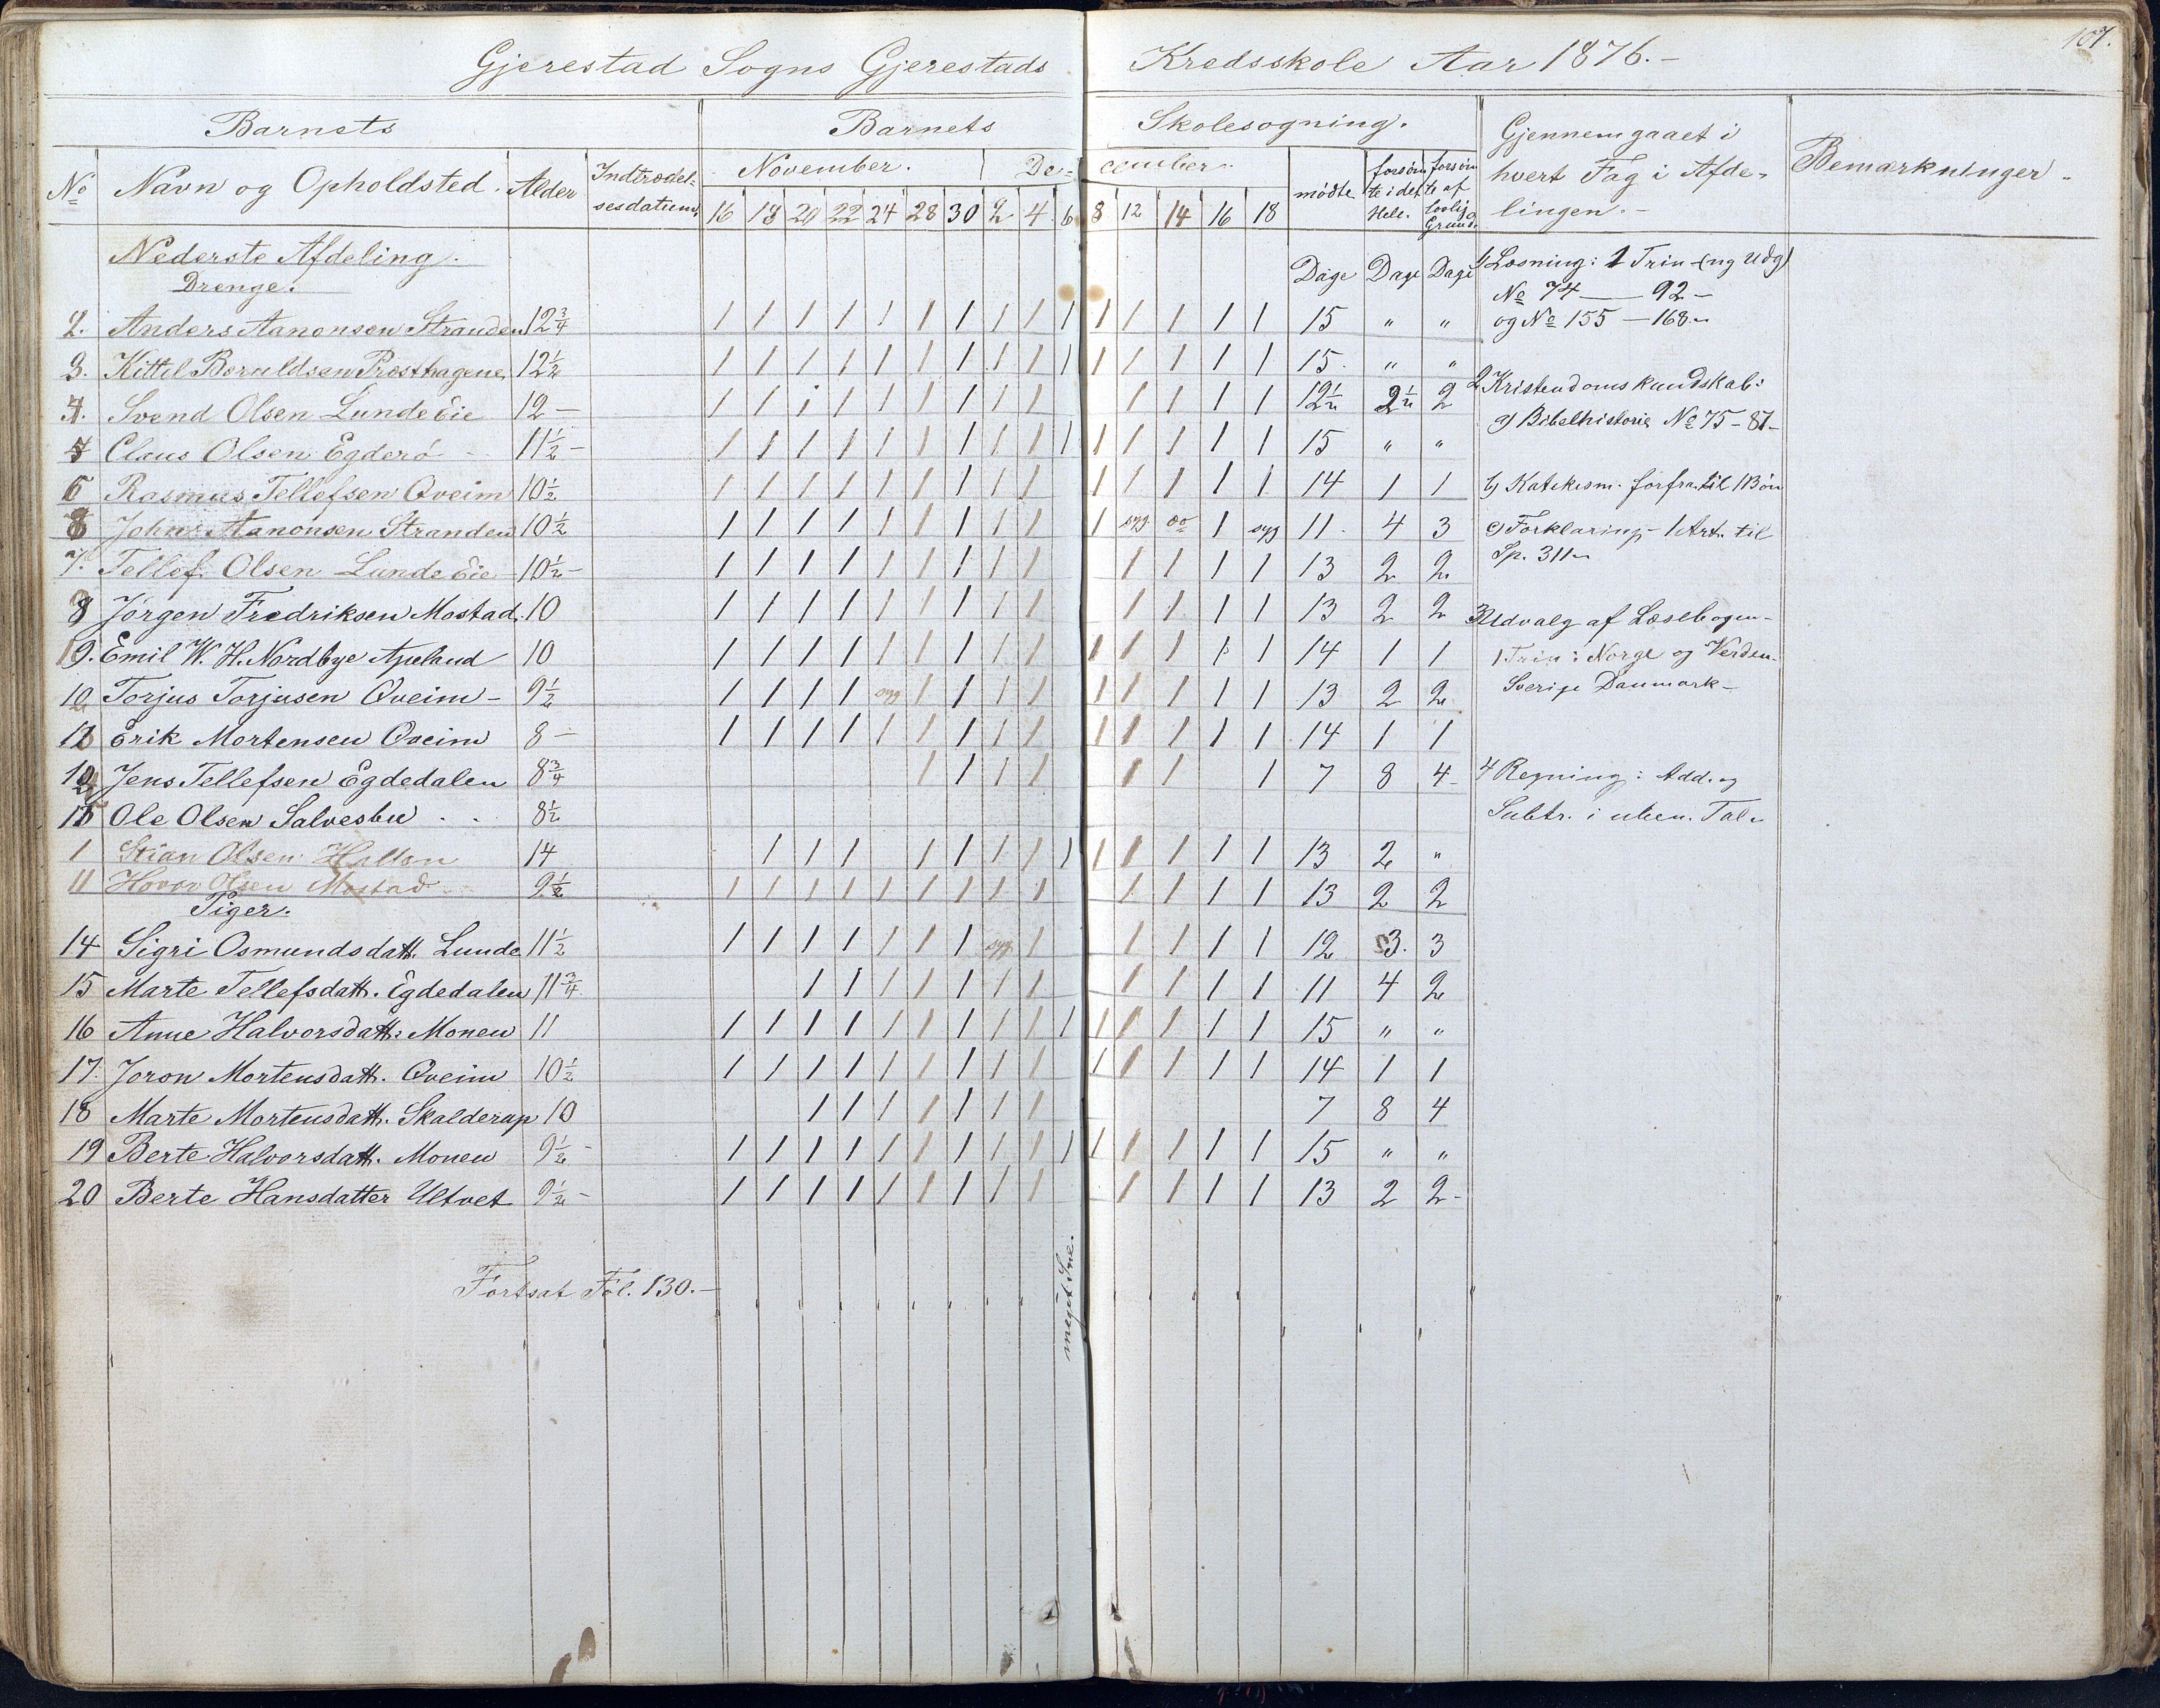 107.
Gjerestad Sogns Gjerestads Kredsskole Aar 1876.-
Barnets Barnets Skolesøgning. Gjennemgaaet i hvert Fag i Afdelingen.- Bemærkninger.
No Navn og Opholdsted. Alder Indtrædelsesdatum November. December. mødte forsømte i det Hele. forsømte af lovlig Grund.
16 18 20 22 24 28 30 2 4 6 8 12 14 16 18
Nederste Afdeling.
Drenge.
Dage Dage Dage
2. Anders Aanonsen Stranden 12 3/4 1 1 1 1 1 1 1 1 1 1 1 1 1 1 1 15 " "
3. Kittel Beruldsen Præsthagen 12 1/2 1 1 1 1 1 1 1 1 1 1 1 1 1 1 1 15 " "
4. Svend Olsen Lunde Eie 12 – 1 1 1 1 1 1 1 1 1 1 1 1 1 12 1/2 2 1/2 2
Claus Olsen Egderö 11 1/2 – 1 1 1 1 1 1 1 1 1 1 1 1 1 1 1 15 " "
6 Rasmus Tellefsen Qveim 10 1/2 1 1 1 1 1 1 1 1 1 1 1 1 1 1 14 1 1
8 John Aanonsen Stranden 10 1/2 1 1 1 1 1 1 1 1 1 1 syg do 1 syg 11. 4 3
7. Tellef Olsen Lunde Eie 10 1/2 – 1 1 1 1 1 1 1 1 1 1 1 1 1 13 2 2
Jörgen Fredriksen Mostad. 10 1 1 1 1 1 1 1 1 1 1 1 1 1 13 2 2
Emil W. H. Nordbye Apeland 10 1 1 1 1 1 1 1 1 1 1 1 1 1 1 14 1 1
Torjus Torjusen Qveim – 9 1/2 1 1 1 1 syg 1 1 1 1 1 1 1 1 1 13 2 2
Erik Mortensen Qveim 8 – 1 1 1 1 1 1 1 1 1 1 1 1 1 1 14 1 1
Jens Tellefsen Egdedalen 8 3/4 1 1 1 1 1 1 1 7 8 4
Ole Olsen Salvesbu . . 8 1/2
1 Stian Olsen 14 1 1 1 1 1 1 1 1 1 1 1 1 1 13 2 "
11 Hovor Olsen Mostad 9 1/2 1 1 1 1 1 1 1 1 1 1 1 1 1 13 2 2
Piger.
14 Sigri Osmundsdatt. Lunde 11 1/2 1 1 1 1 1 1 1 syg 1 1 1 1 1 12 3. 3
15 Marte Tellefsdatt. Egdedalen 11 3/4 1 1 1 1 1 1 1 1 1 1 1 11 4 2
16 Anne Halvorsdatt. Monen 11 1 1 1 1 1 1 1 1 1 1 1 1 1 1 1 15 " "
17. Joron Mortensdatt. Qveim 10 1/2 1 1 1 1 1 1 1 1 1 1 1 1 1 1 14 1 1
18 Marte Mortensdatt. Skalderup 10 1 1 1 1 1 1 1 7 8 4
19 Berte Halvorsdatt. Monen 9 1/2 – 1 1 1 1 1 1 1 1 1 1 1 1 1 1 1 15 " "
20 Berte Hansdatter Utvet 9 1/2 – 1 1 1 1 1 1 1 1 1 1 1 1 1 13 2 2 –
Fortsat Fol. 130.–
meget Sne.
1, Læsning: 1 Trin (ny Udg)
No 74 — 92 –
og No 155 – 168
2, Kristendomskundskab:
a) Bibelhistorie No 75 – 87 –
b) Katekism. forfra til 1 Bön
c) Forklaring – 1 Art. til
Sp. 311
3, Udvalg af Læsebogen –
1 Trin: Norge og Verden
Sverige Danmark –
4 Regning: Add. og
Subtr. i uben. Tal